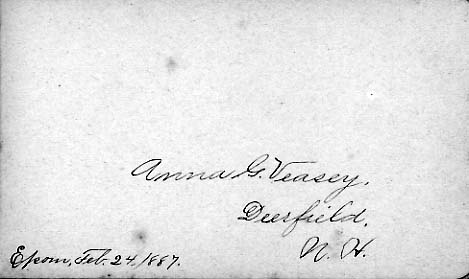 Anna G. Veasey.
Deerfield.
N. H.
Epsom, Feb. 24, 1887.